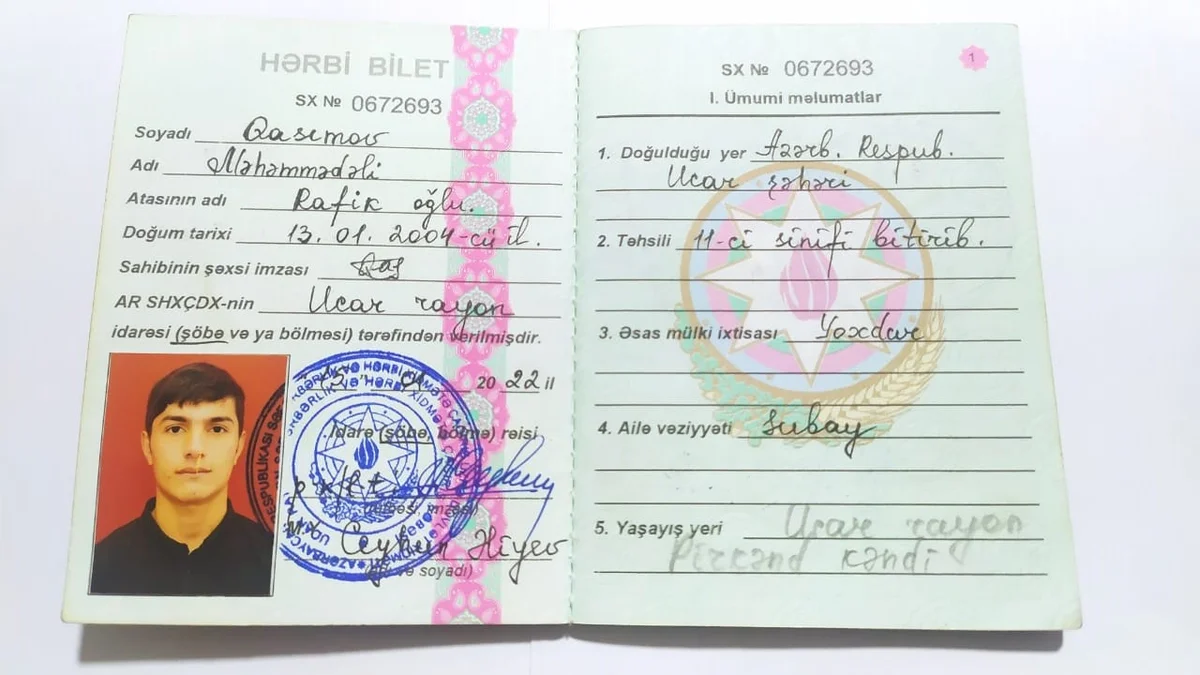 HƏRBİ BİLET
SX № 0672693
Soyadı Qasımov
Adı Məhəmmədəli
Atasının adı Rafik oğlu.
Doğum tarixi 13.01.2004-cü il.
Sahibinin şəxsi imzası
AR SHXÇDX-nin Ucar rayon
idarəsi (şöbə və ya bölməsi) tərəfindən verilmişdir.
01 2022 il
İdarə (şöbə, bölmə) rəisi
M.Y. Ceyhun Əliyev
(adı və soyadı)
SX № 0672693
1
I. Ümumi məlumatlar
1. Doğulduğu yer Azərb. Respub.
Ucar şəhəri
2. Təhsili 11-ci sinifi bitirib.
3. Əsas mülki ixtisası Yoxdur
4. Ailə vəziyyəti Subay
5. Yaşayış yeri Ucar rayon
Pirkənd kəndi